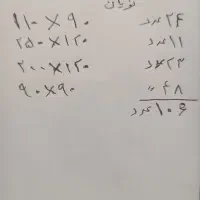 توریان
۱۱۰ × ۹۰ ۲۴ عدد
۲۵۰ × ۱۲۰ ۱۱ عدد
۲۰۰ × ۱۲۰ ۲۳ عدد
۹۰ × ۹۰ ۴۸
۱۰۶ عدد